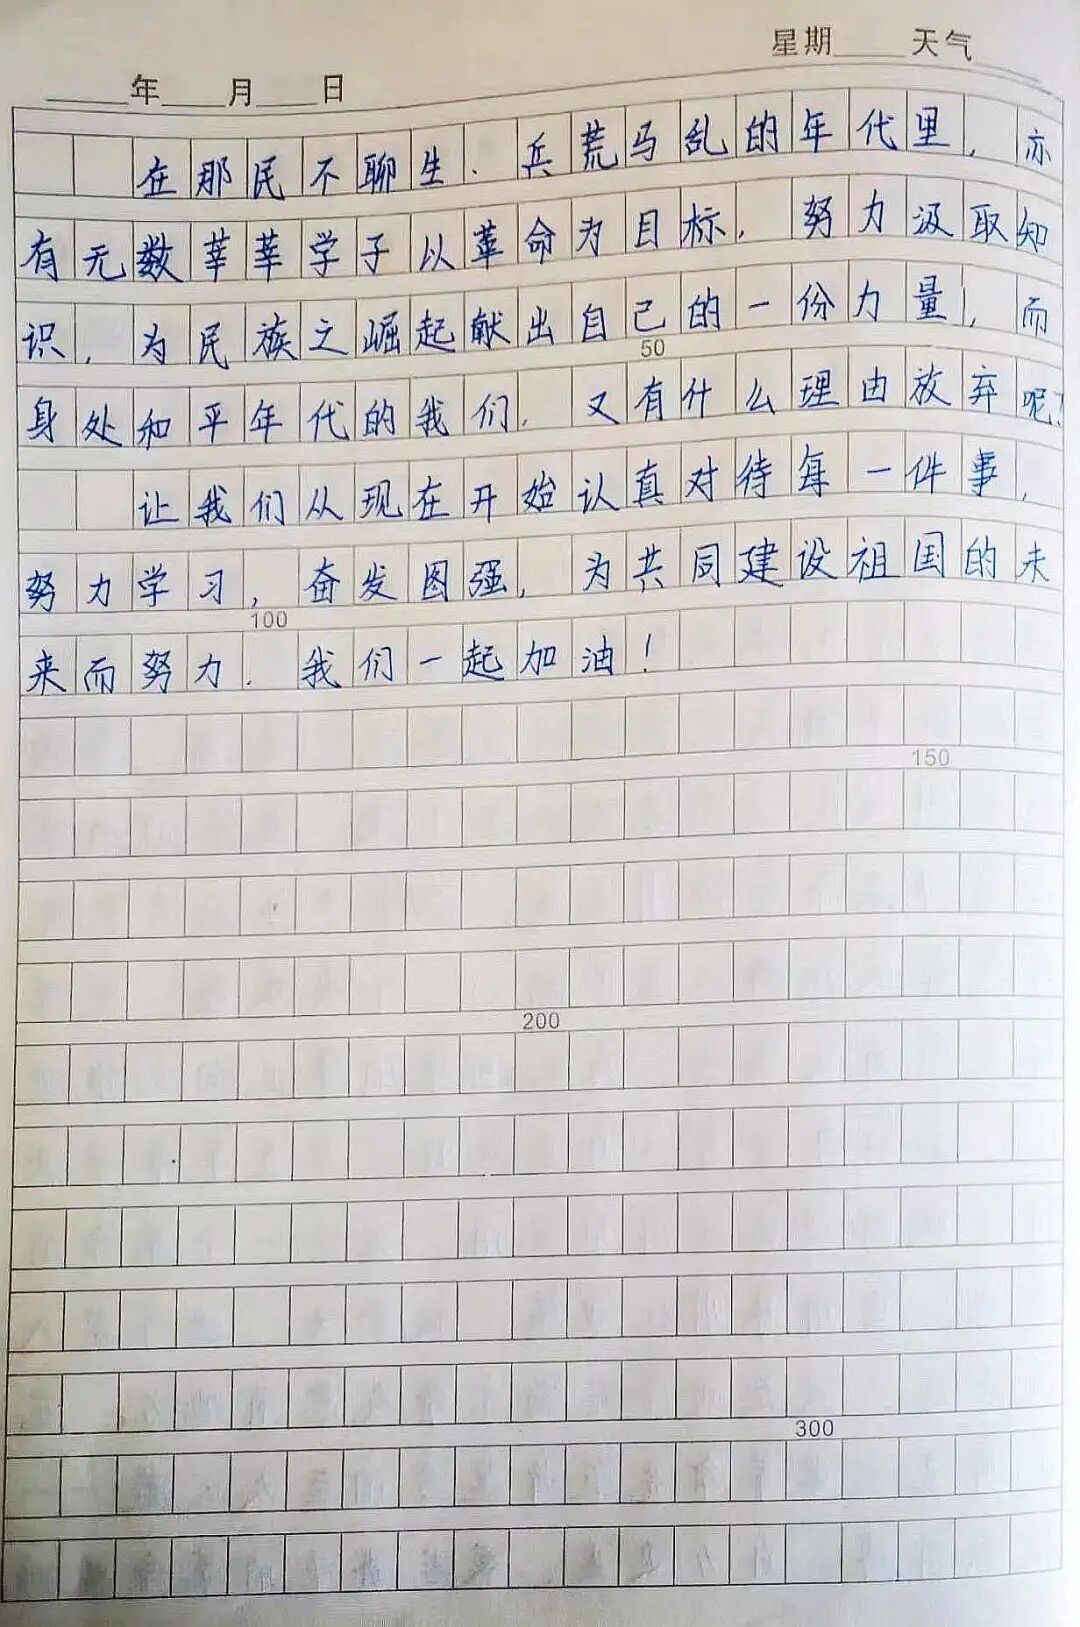 星期____天气____
____年____月____日
在那民不聊生、兵荒马乱的年代里，亦
有无数莘莘学子以革命为目标，努力汲取知
识，为民族之崛起献出自己的一份力量，而
50
身处和平年代的我们，又有什么理由放弃呢？
让我们从现在开始认真对待每一件事，
努力学习，奋发图强，为共同建设祖国的未
100
来而努力．我们一起加油！
150
200
300